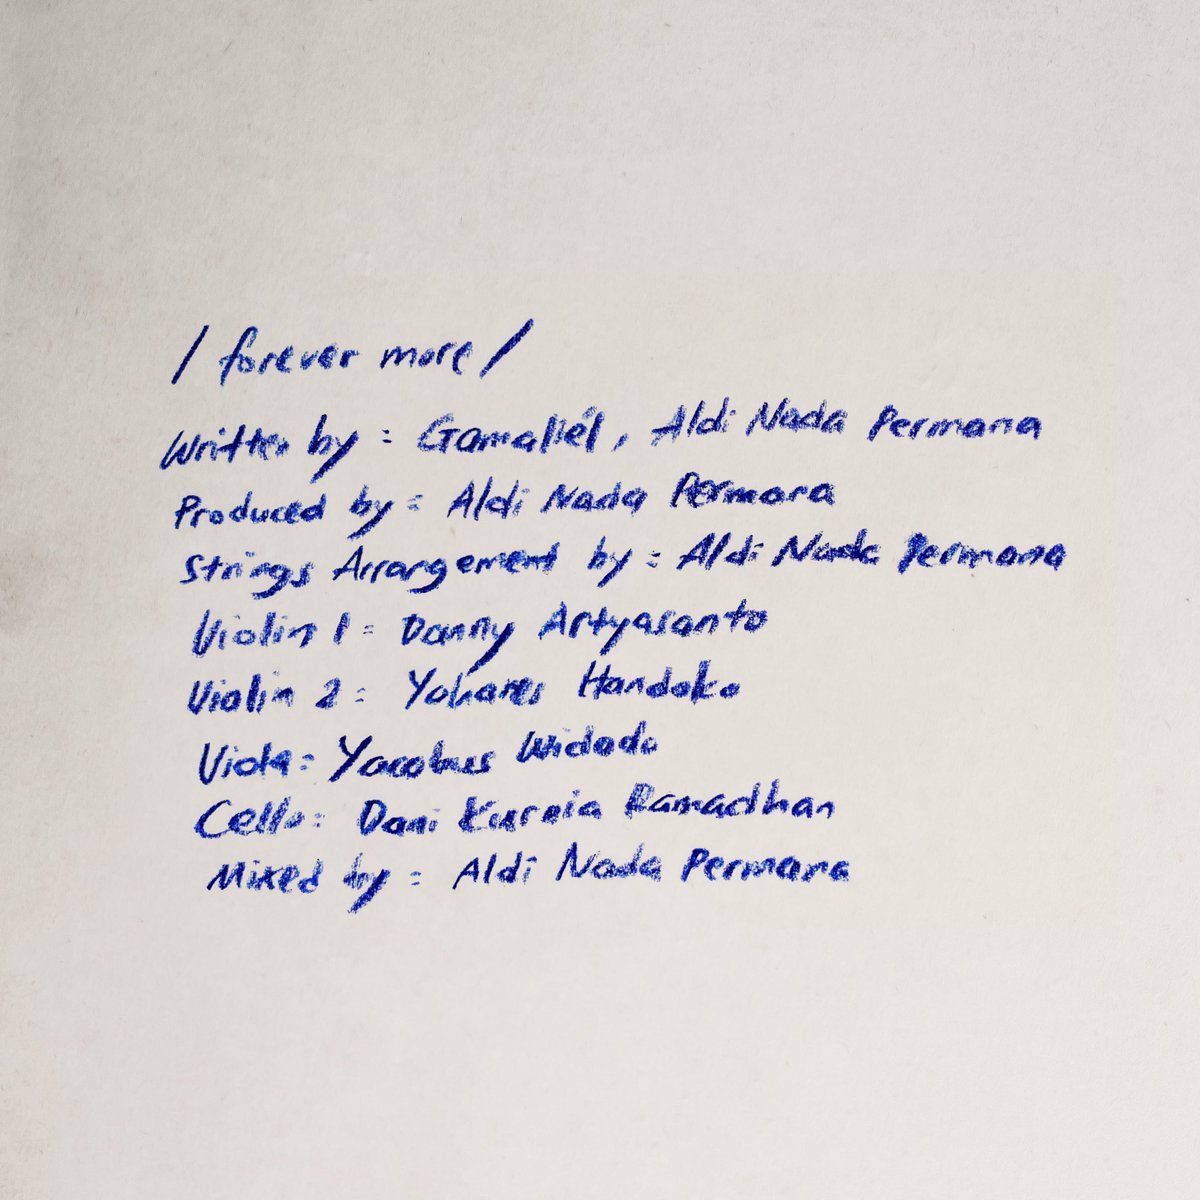 / forever more /
Written by : Gamaliél, Aldi Nada Permana
Produced by : Aldi Nada Permana
Strings Arrangement by : Aldi Nada Permana
Violin 1 : Danny Artyasanto
Violin 2 : Yohanes Handoko
Viola : Yacobus Widodo
Cello : Dani Kurnia Ramadhan
Mixed by : Aldi Nada Permana